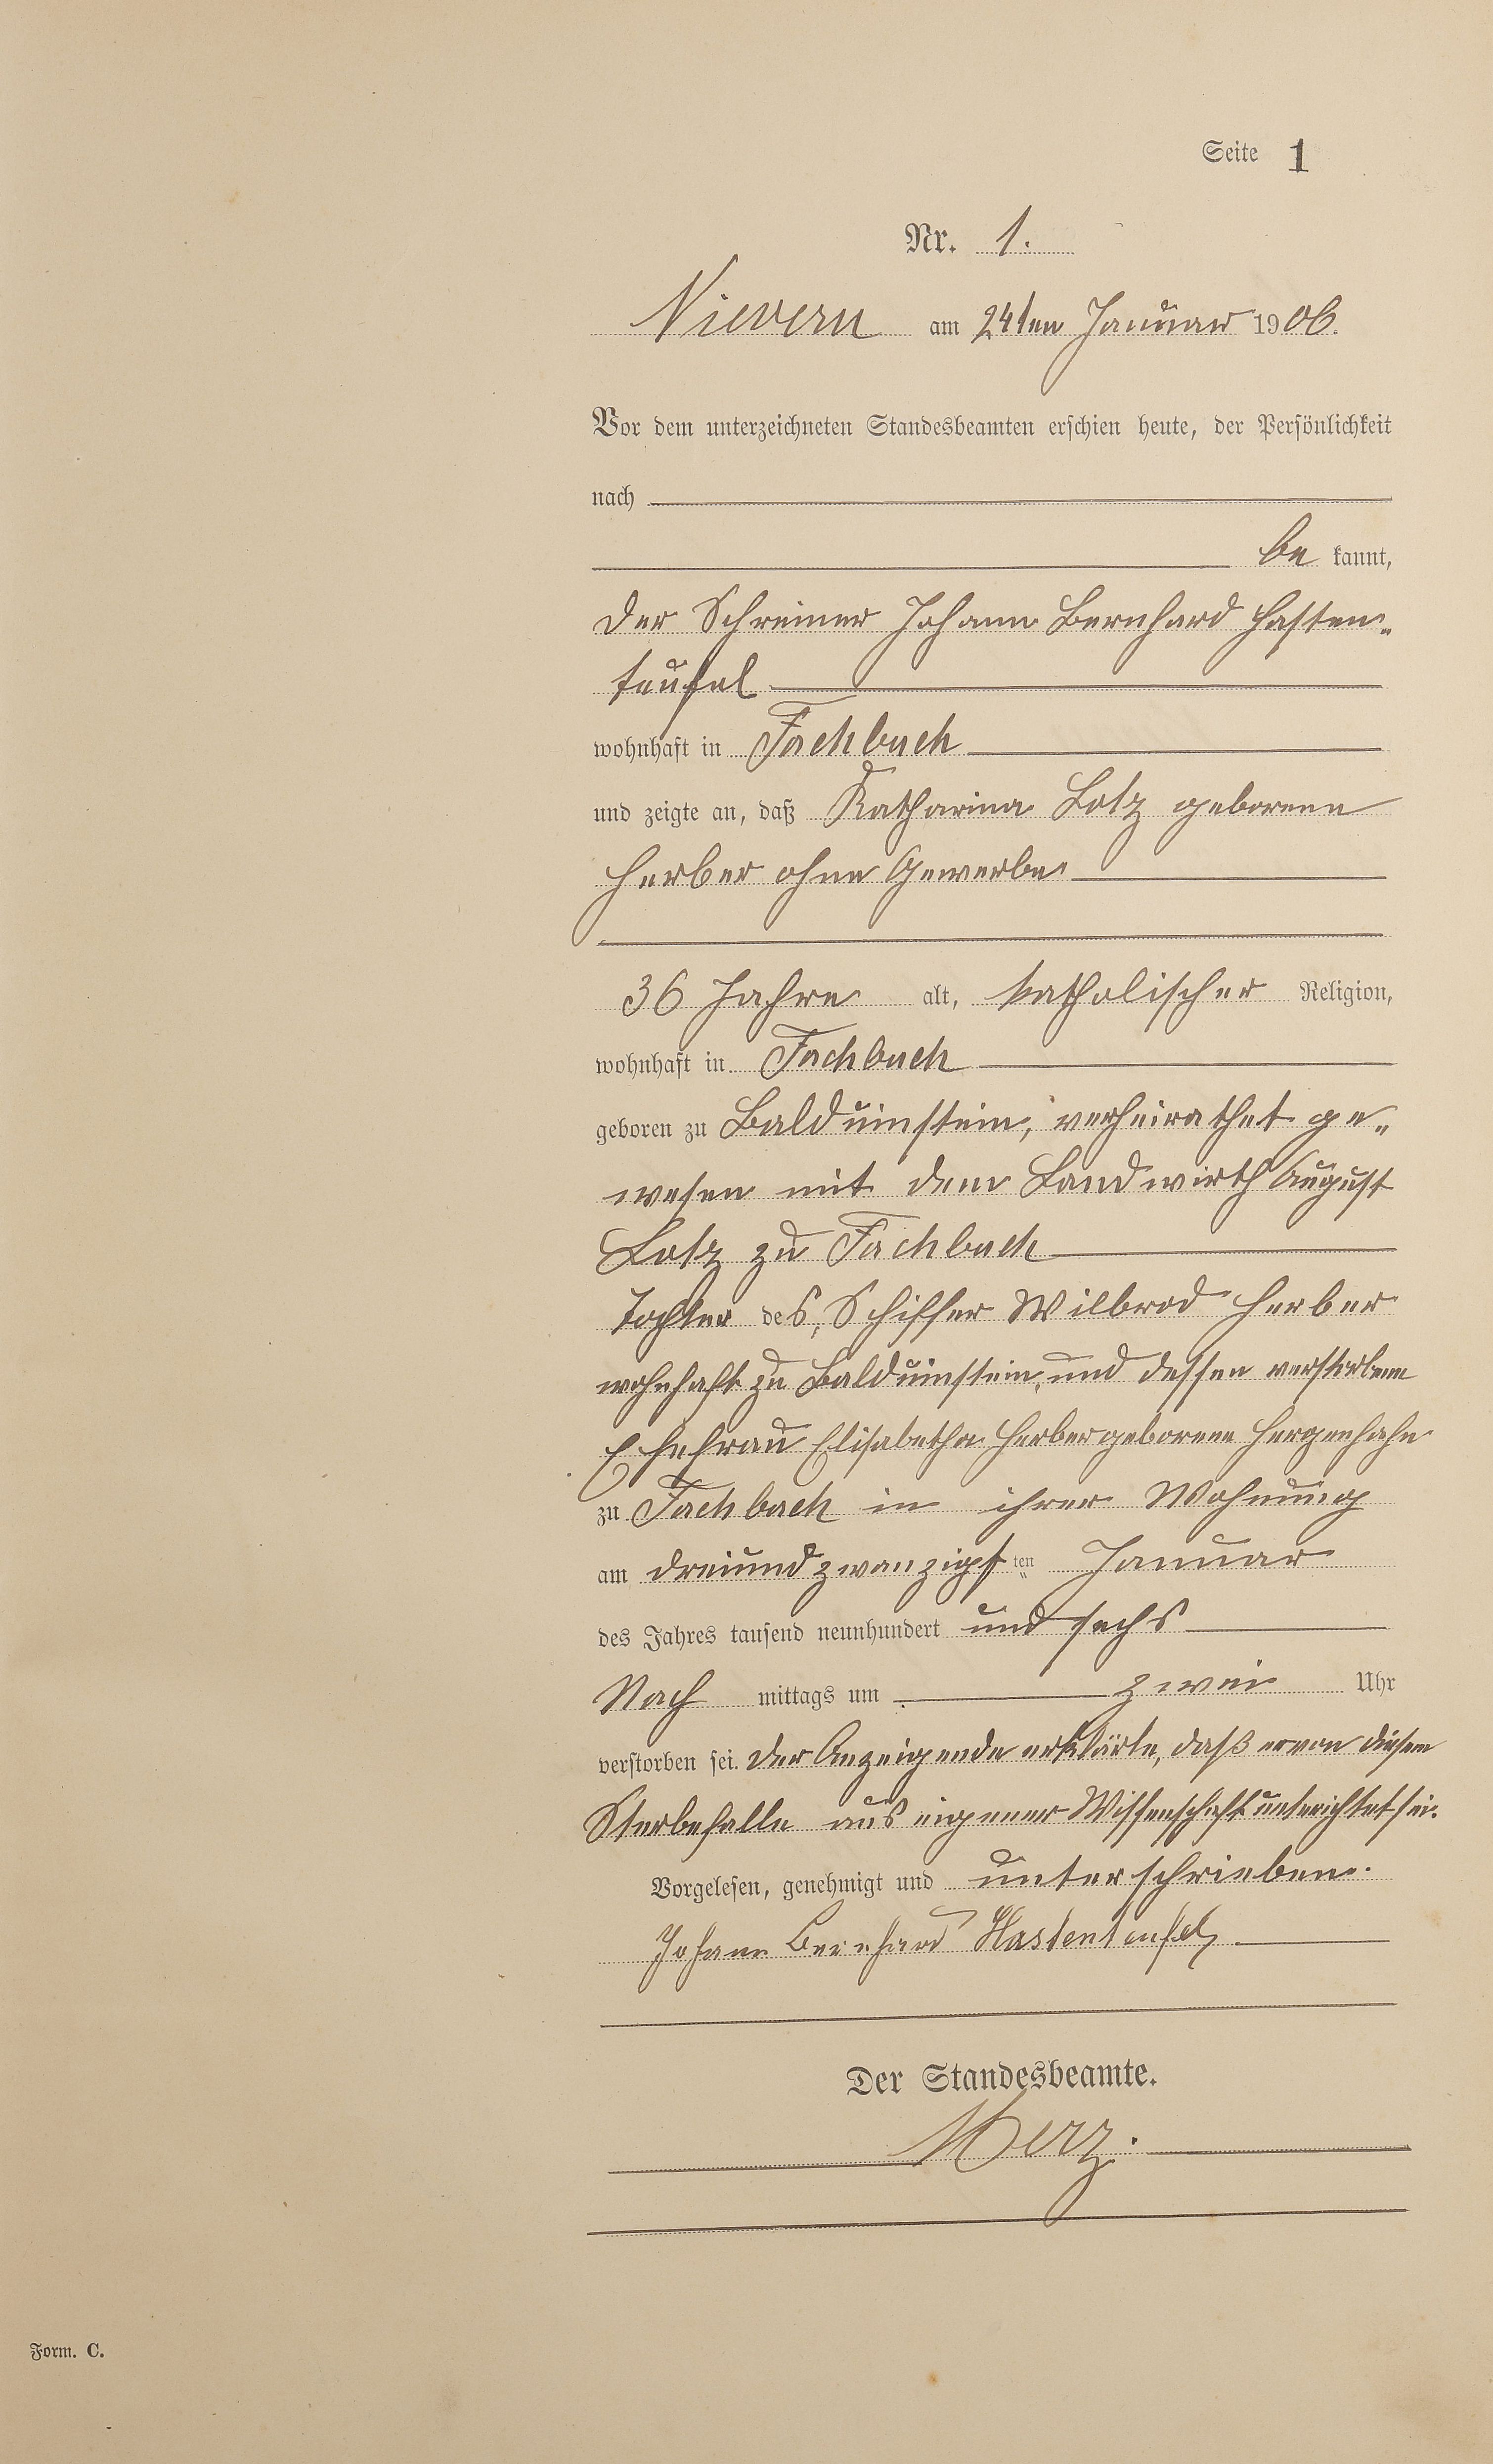 Seite 1
Nr. 1.
Nievern am 24ten Januar 1906.
Vor dem unterzeichneten Standesbeamten erschien heute, der Persönlichkeit
nach
be kannt,
der Schreiner Johann Bernhard Hasten„
teufel
wohnhaft in Fachbach
und zeigte an, daß Katharina Lotz geborene
Herber ohne Gewerbe
36 Jahre alt, katholischer Religion,
wohnhaft in Fachbach
geboren zu Balduinstein, verheirathet ge„
wesen mit dem Landwirth August
Lotz zu Fachbach
Tochter des, Schiffer Wilbrod Herber
wohnhaft zu Balduinstein, und dessen verstorbene
Ehefrau Elisabetha Herber geborene Hergenhahn
zu Fachbach in ihrer Wohnung
am dreiundzwanzigsten Januar
des Jahres tausend neunhundert und sechs
Nach mittags um zwei Uhr
verstorben sei. Der Anzeigende erklärte, daß er von diesem
Sterbefalle aus eigener Wissenschaft unterichtet sei.
Vorgelesen, genehmigt und unterschrieben.
Johann Bernhard Hastenteufel
Der Standesbeamte.
Merz.
Form. C.